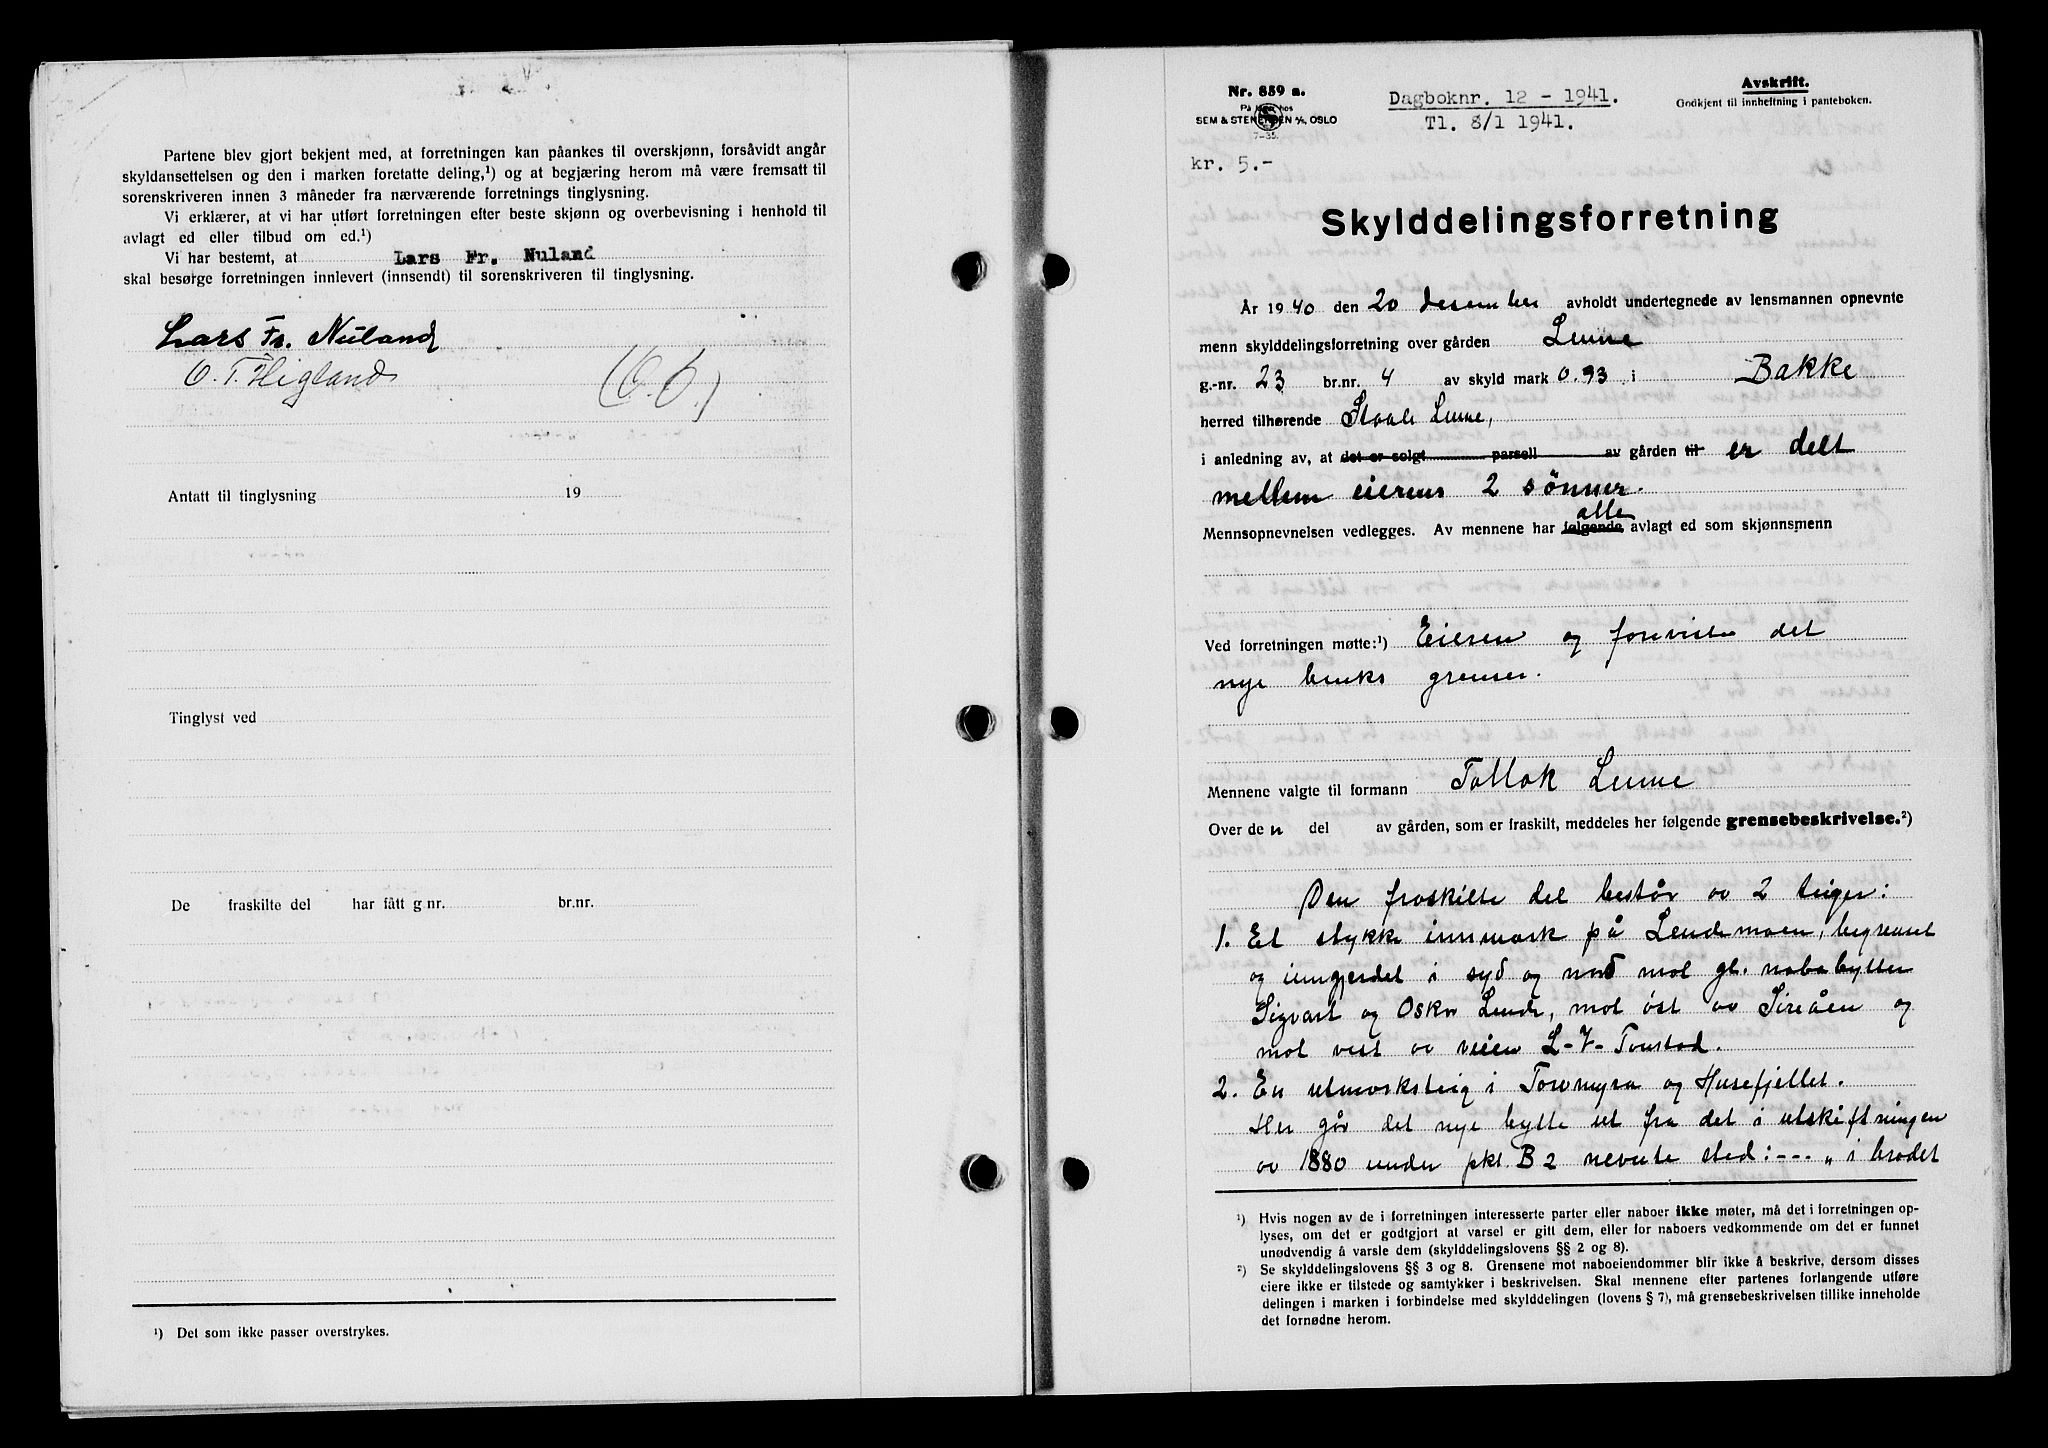 Partene blev gjort bekjent med, at forretningen kan påankes til overskjønn, forsåvidt angår
skyldansettelsen og den i marken foretatte deling,¹) og at begjæring herom må være fremsatt til
sorenskriveren innen 3 måneder fra nærværende forretnings tinglysning.
Vi erklærer, at vi har utført forretningen efter beste skjønn og overbevisning i henhold til
avlagt ed eller tilbud om ed.¹)
Vi har bestemt, at Lars Fr. Nuland
skal besørge forretningen innlevert (innsendt) til sorenskriveren til tinglysning.
Lars Fr. Nuland
O. T. Higland
Antatt til tinglysning 19
Tinglyst ved
De fraskilte del har fått g nr. br.nr.
¹) Det som ikke passer overstrykes.
Nr. 859 a.
På lager hos
SEM & STENERSEN A/S, OSLO
7-35.
Dagboknr. 12 - 1941.
Tl. 8/1 1941.
Avskrift.
Godkjent til innheftning i panteboken.
kr. 5.-
Skylddelingsforretning
År 1940 den 20 desember avholdt undertegnede av lensmannen opnevnte
menn skylddelingsforretning over gården Lunne
g.-nr. 23 br.nr. 4 av skyld mark 0.93 i Bakke
herred tilhørende Staale Lunne,
i anledning av, at det er solgt parsell av gården til er delt
mellem eierens 2 sønner.
alle
Mennsopnevnelsen vedlegges. Av mennene har følgende avlagt ed som skjønnsmenn
Ved forretningen møtte:¹) Eieren og foreviste det
nye bruks grenser.
Mennene valgte til formann Tallak Lunne
Over de n del av gården, som er fraskilt, meddeles her følgende grensebeskrivelse.²)
Den fraskilte del består av 2 teiger:
1. Et stykke innmark på Lendemoen, begrenset
og inngjerdet i syd og nord mot gl. nabobytter
Sigvart og Oskar Lende, mot øst av Sireåen og
mot vest av veien L-V-Tonstad.
2. En utmarksteig i Torvmyra og Husefjellet.
Her går det nye bytte ut fra det i utskiftningen
av 1880 under pkt. B 2 nevnte sted: --- „ i bradet
¹) Hvis nogen av de i forretningen interesserte parter eller naboer ikke møter, må det i forretningen op-
lyses, om det er godtgjort at varsel er gitt dem, eller for naboers vedkommende om det er funnet
unødvendig å varsle dem (skylddelingslovens §§ 2 og 8).
²) Se skylddelingslovens §§ 3 og 8. Grensene mot naboeiendommer blir ikke å beskrive, dersom disses
eiere ikke er tilstede og samtykker i beskrivelsen. Skal mennene efter partenes forlangende utføre
delingen i marken i forbindelse med skylddelingen (lovens § 7), må grensebeskrivelsen tillike inneholde
det fornødne herom.